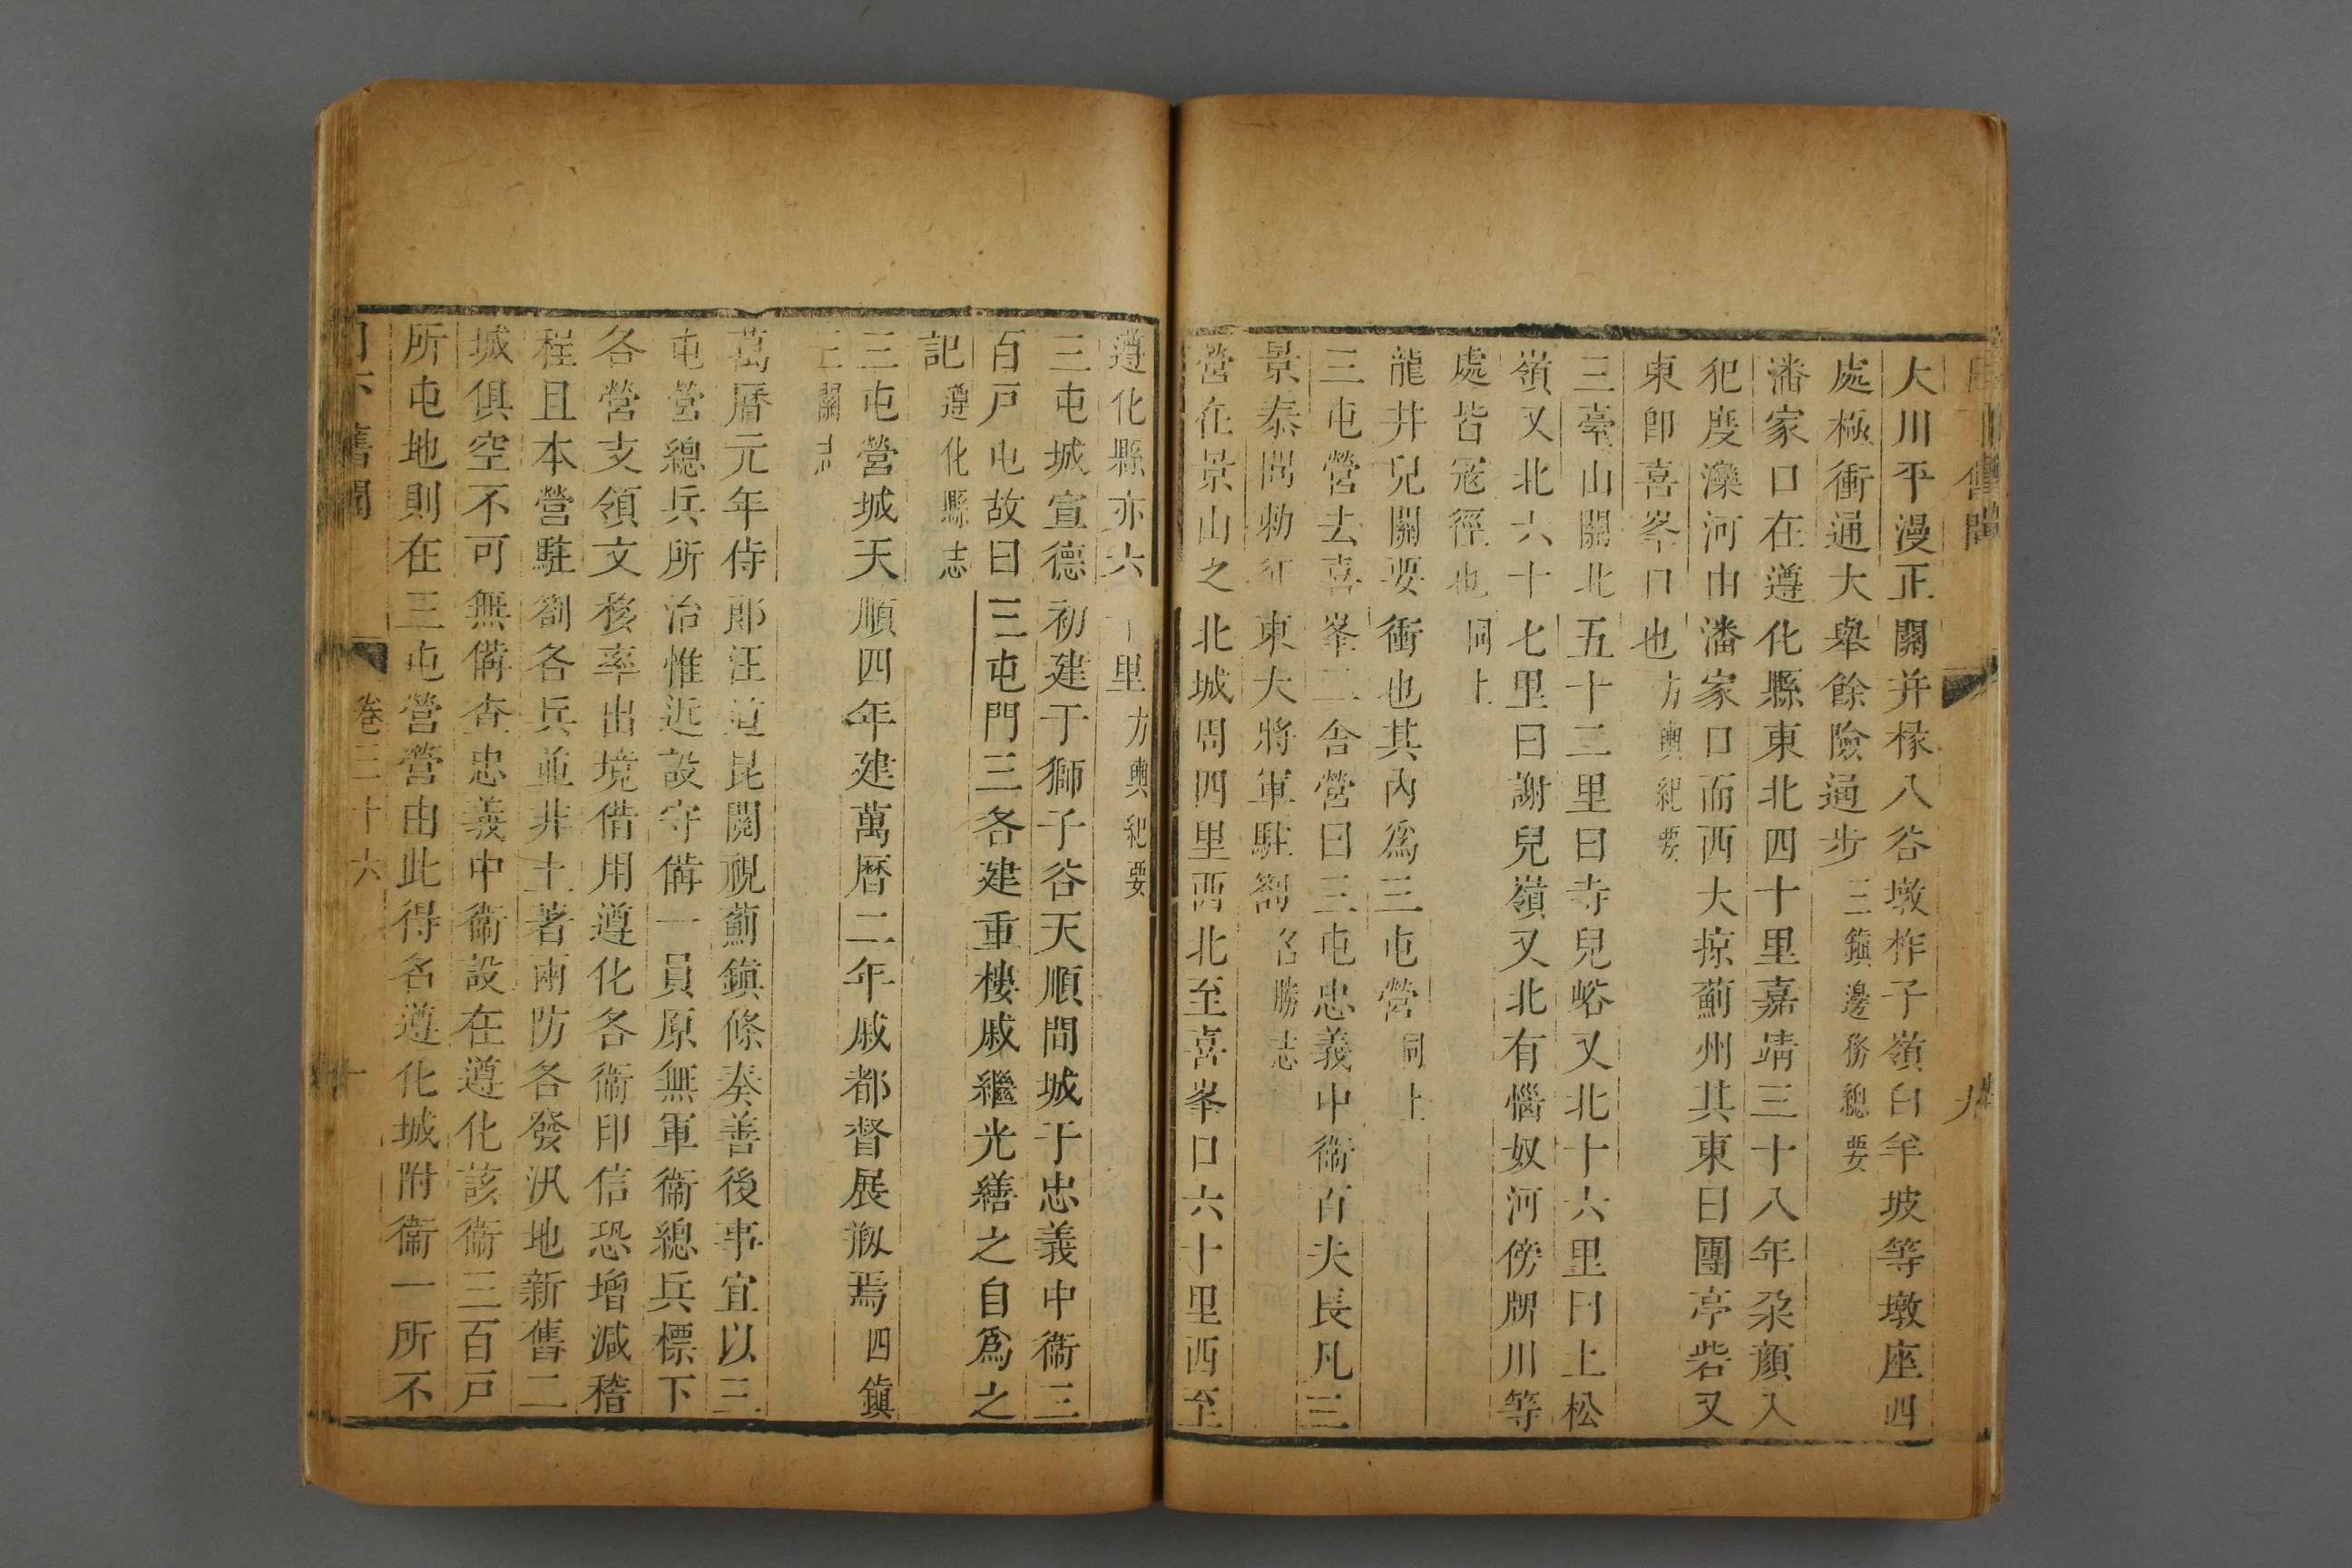 大川平漫正關并椽八谷墩柞子嶺白羊坡等墩座四
處極衝通大舉餘險通步三鎮邊務總要
潘家口在遵化縣東北四十里嘉靖三十八年朶顏入
犯度灤河由潘家口而西大掠薊州其東曰團亭砦又
東即喜峯口也方輿紀要
三臺山關北五十二里曰寺兒峪又北十六里曰上松
嶺又北六十七里曰謝兒嶺又北有惱奴河傍牌川等
處皆寇徑也同上
龍井兒關要衝也其內為三屯營同上
三屯營去喜峯二舍營曰三屯忠義中衞百夫長凡三
景泰間勑征東大將軍駐劄名勝志
營在景山之北城周四里西北至喜峯口六十里西至
遵化縣亦六十里方輿紀要
三屯城宣德初建于獅子谷天順間城于忠義中衞三
百戸屯故曰三屯門三各建重樓戚繼光繕之自為之
記遵化縣志
三屯營城天順四年建萬曆二年戚都督展剏焉四鎮
三關志
萬曆元年侍郎汪道昆閱視薊鎮條奏善後事宜以三
屯營總兵所治惟近設守備一員原無軍衞總兵標下
各營支領文移率出境借用遵化各衞印信恐增減稽
程且本營駐劄各兵並非土著兩防各發汛地新舊二
城俱空不可無備查忠義中衞設在遵化該衞三百戸
所屯地則在三屯營營由此得名遵化城附衞一所不
日下舊聞 卷三十六 十